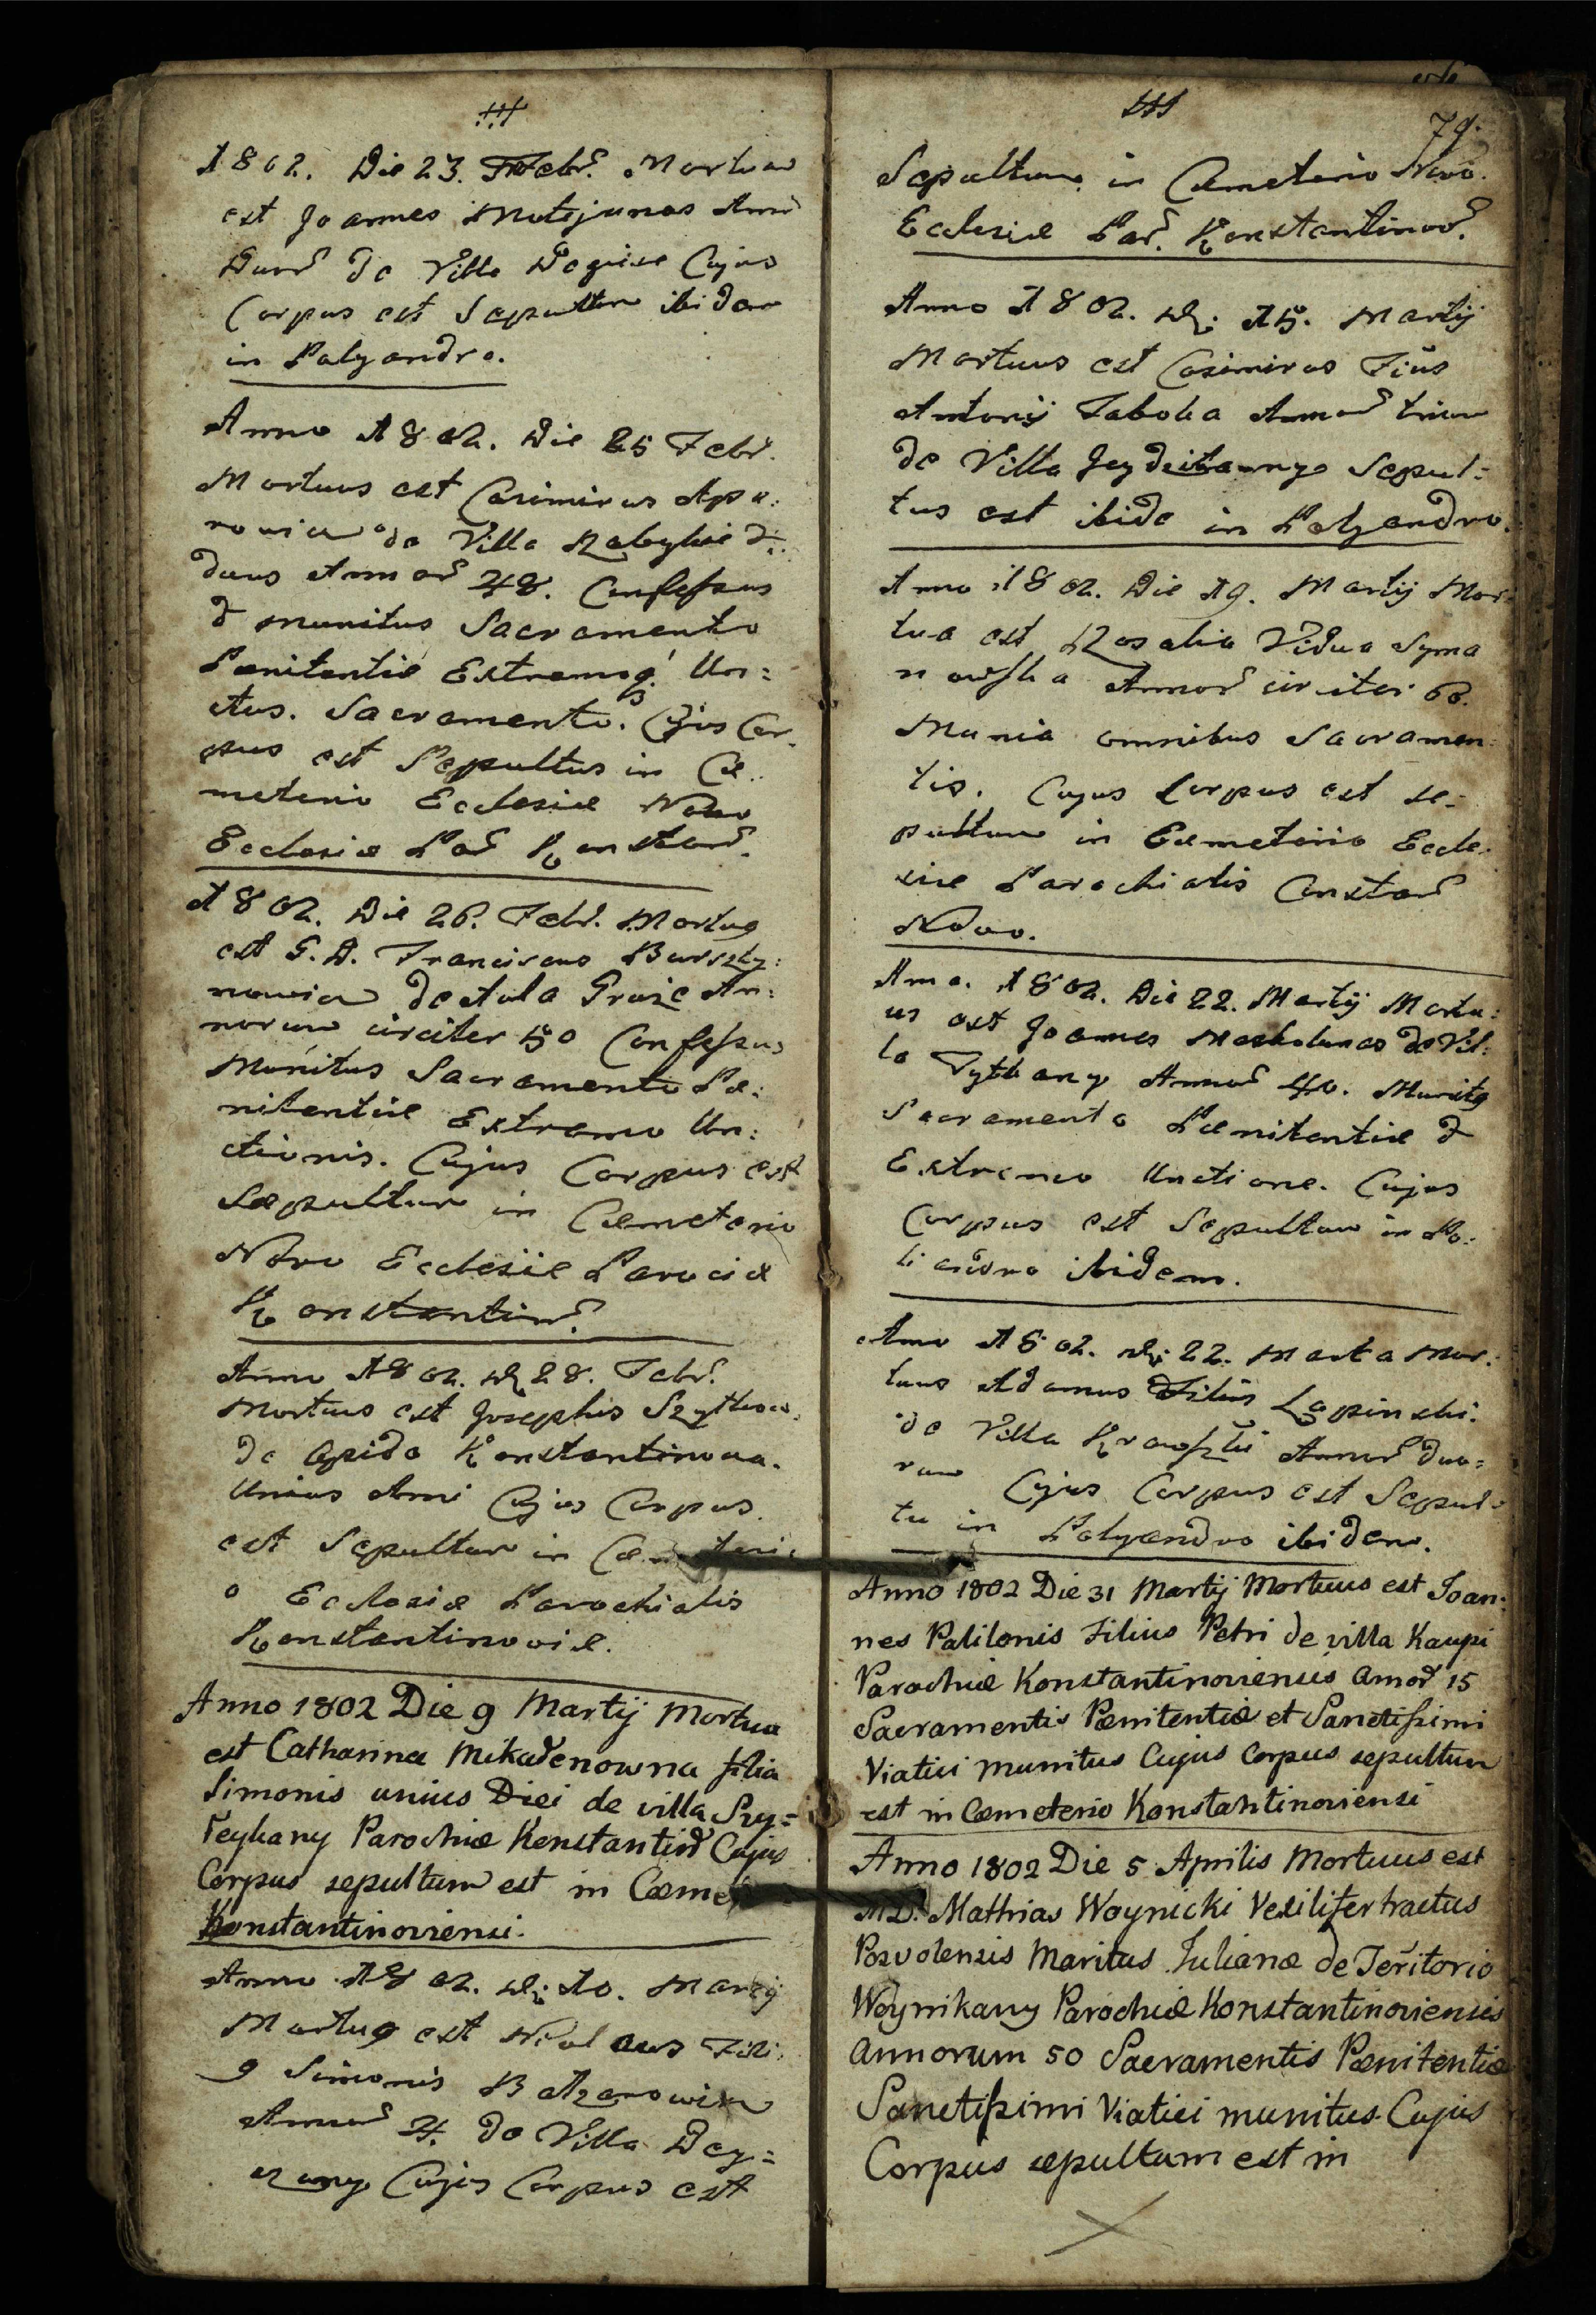 1802. Die 23. Febr. Mortuus
est Joannes Motejunas Anno
Duor de Villa Degisze Cujus
Corpus est Sepultum ibidem
in Polyandro.
Anno 1802. Die 25 Febr.
Mortuus est Casimirus Apa:
nowicz de Villa
duus Annor 48. Confessus
& munitus Sacramento
Penitentiæ Extremæq. Un:
ctus. Sacramento. Cujus Cor:
pus est Sepultus in Cæ:
meterio Ecclesiæ Novo
Ecclesiæ Par Konstant.
1802. Die 26. Febr. Mortus
est G. D. Franciscus Burszty:
nowicz de Aula Gruże An:
norum circiter 50 Confessus
Munitus Sacramento Pæ:
nitentiæ Extremo Un:
ctionis. Cujus Corpus est
Sepultum in Cæmeterio
Novo Ecclesiæ Parociæ
Konstantinov.
Anno 1802. D. 28. Febr.
Mortuus est Josephus
de Opido Konstantinowa.
Unius Anni Cujus Corpus.
est Sepultum in Cæmeteri:
o Ecclesiæ Parochialis
Konstantinoviæ.
Anno 1802 Die 9 Martij Mortua
est Catharina Mikadenowna filia
Simonis unius Diei de villa Szy=
leykany Parochiæ Konstantin Cujus
Corpus sepultum est in Cæme
Konstantinoviensi.
Anno 1802. D: 10. Martij
Mortug est Nicolaus Fili:
9 Simonis Batzanowicz
Annor 4. de Villa Dey=
uzany Cujus Corpus est
79.
Sepultum in Cæmeterio Novo.
Ecclesiæ Par. Konstantinov.
Anno 1802. D: 15. Martij
Mortuus est Casimirus Fius
Antonij Zaboka Annor trium
de Villa Sepul:
tus est ibide in Polyandro.
Anno 1802. Die 19. Martij Mor:
tua est Rosalia Vidua Syma
nowska Annor circiter 60.
Munia omnibus Sacramen:
tis. Cujus Corpus est se:
pultum in Cæmeterio Eccle:
siæ Parochialis Constan
Novo.
Anno. 1802. Die 22. Martij Mortu:
us est Joannes Maskolunas de Vil:
la Tytkany Annor 40. Munitg
Sacramento Pænitentiæ &
Extremo Unctione. Cujus
Corpus est Sepultum in Po:
liandro ibidem.
Anno 1802. D: 22. Marta Mor:
tuus Adamus Filius Łapinski.
de Villa Annor duo:
rum Cujus Corpus est Sepul:
tu in Polyandro ibidem.
Anno 1802 Die 31 Martij Mortuus est Joan:
nes Palilonis Filius Petri de villa Kaupi
Parochiæ Konstantinoviensis Annor 15
Sacramentis Pænitentiæ et Sanctissimi
Viatici munitus Cujus Corpus sepultum
est in Cæmeterio Konstantinoviensi
Anno 1802 Die 5 Aprilis Mortuus est
M. D. Mathias Woynicki Vexilifer tractus
Posvolensis Maritus Julianæ de Teritorio
Woynikany Parochiæ Konstantinoviensis
Annorum 50 Sacramentis Pænitentiæ
Sanctissimi Viatici munitus Cujus
Corpus sepultum est in